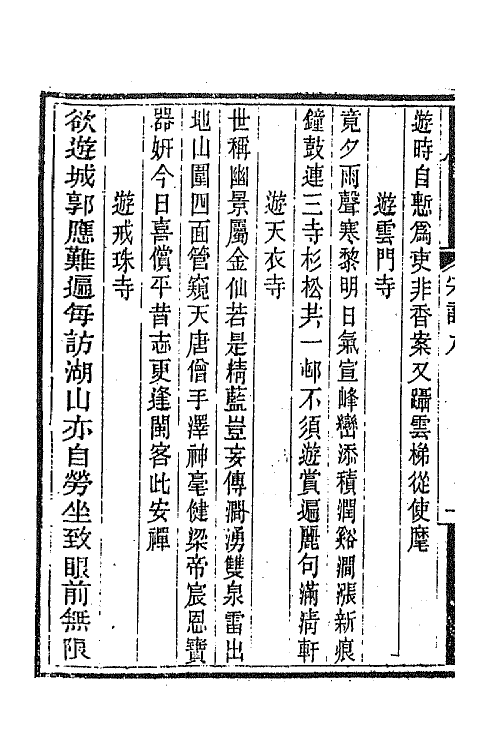 遊時自慙爲吏非香案又躡雲梯從使麾
遊雲門寺
竟夕雨聲寒黎明日氣宣峰巒添積潤谿澗漲新痕
鐘鼓連三寺杉松共一邨不須遊賞遍麗句滿清軒
遊天衣寺
世稱幽景屬金仙若是精藍豈妄傳澗湧雙泉雷出
地山圍四面管窺天唐僧手澤神毫健梁帝宸恩寶
器妍今日喜償平昔志更逢閩客此安禪
遊戒珠寺
欲遊城郭應難遍每訪湖山亦自勞坐致眼前無限